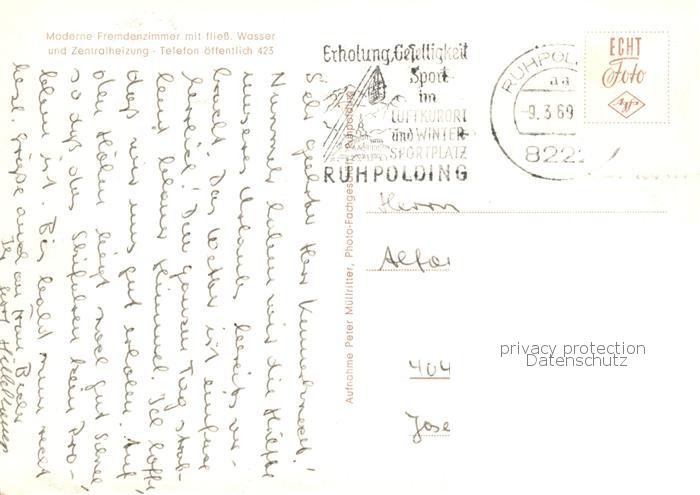 Moderne Fremdenzimmer mit fließ. Wasser
und Zentralheizung - Telefon öffentlich 423
Erholung, Geselligkeit
Sport
im
LUFTKURORT
und WINTER-
SPORTPLATZ
RUHPOLDING
RUHPOL
-9.3.69
8222
ECHT
Foto
Agfa
Sehr geehrter Herr
Nunmehr haben wir die Hälfte
unseres Urlaubs bereits ver-
bracht. Das Wetter ist einfach
herrlich. Den ganzen Tag strah-
lend blauer Himmel. Ich hoffe,
daß wir uns gut erholen. Auf
den Höhen liegt noch gut Schnee
so daß das Skifahren kein Pro-
blem ist. Bis bald und recht
herzl. Grüße auch an Frau
Ihr
Aufnahme Peter Müllritter, Photo-Fachgeschäft, Ruhpolding
Herrn
404
privacy protection
Datenschutz